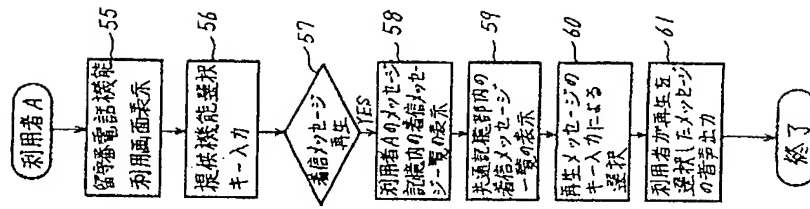 利用者A
55
留守番電話機能
利用画面表示
56
提供機能選択
キー入力
57
着信メッセージ
再生
YES
58
利用者Aのメッセージ
記憶内の着信メッセー
ジ一覧の表示
59
共通記憶部内の
着信メッセージ
一覧の表示
60
再生メッセージの
キー入力による
選択
61
利用者が再生を
選択したメッセージ
の音声出力
終了